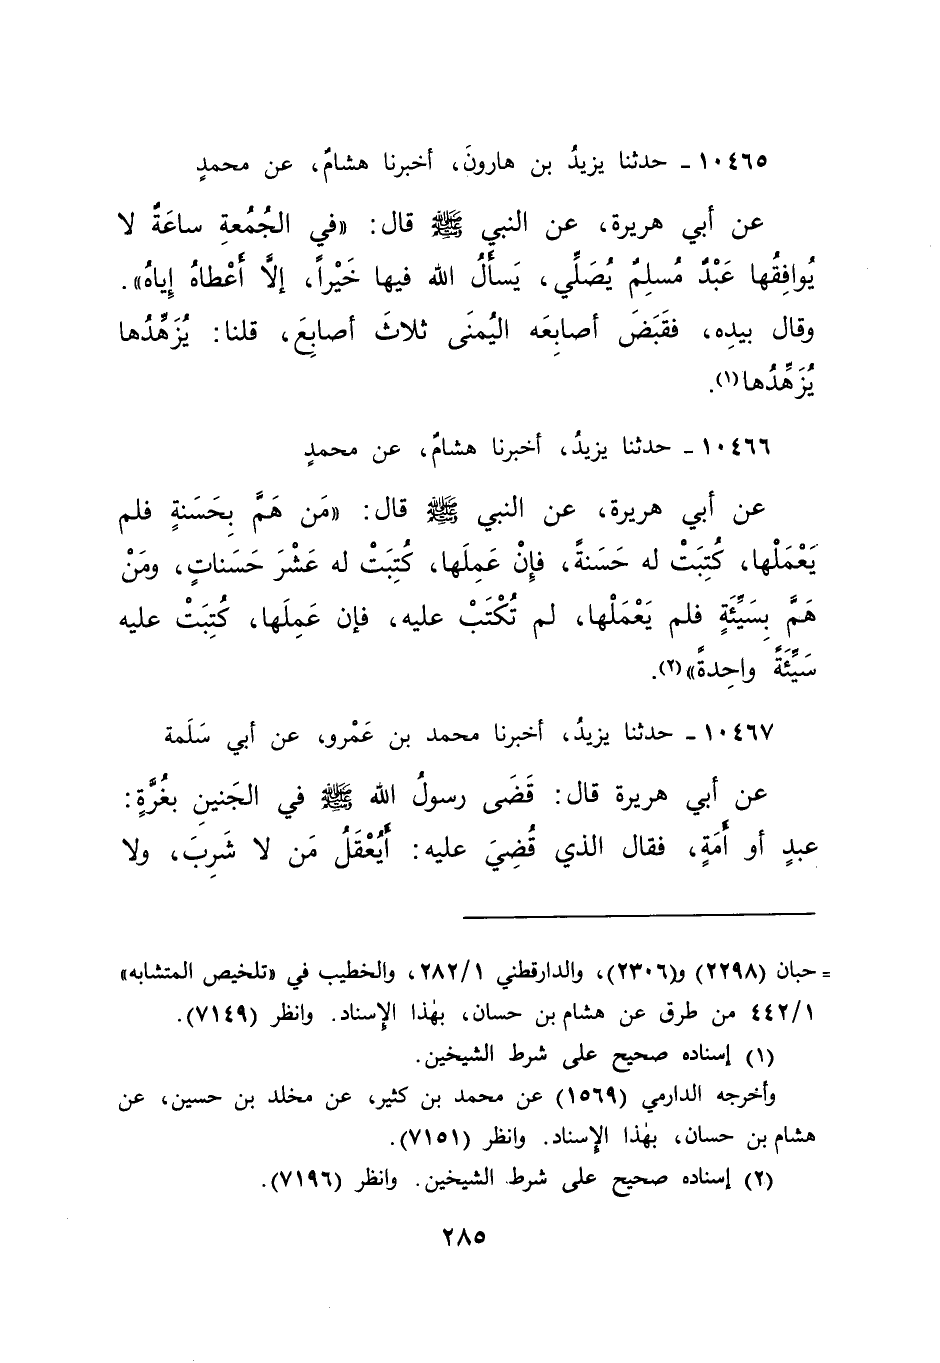 ١٠٤٦٥ - حدثنا يزيدُ بن هارونَ، أخبرنا هشامٌ، عن محمدٍ
عن أبي هريرة، عن النبي ﷺ قال: «في الجُمُعةِ ساعَةٌ لا
يُوافِقُها عَبْدٌ مُسلِمٌ يُصَلِّي، يَسأَلُ الله فيها خَيْراً، إلَّا أَعْطاهُ إِياهُ».
وقال بيدِه، فقَبَضَ أصابِعَه اليُمنَى ثلاثَ أصابِعَ، قلنا: يُزَهِّدُها
يُزَهِّدُها(١).
١٠٤٦٦ - حدثنا يزيدُ، أخبرنا هشامٌ، عن محمدٍ
عن أبي هريرة، عن النبي ﷺ قال: «مَن هَمَّ بِحَسَنةٍ فلم
يَعْمَلْها، كُتِبَتْ له حَسَنةً، فإِنْ عَمِلَها، كُتِبَتْ له عَشْرَ حَسَناتٍ، ومَنْ
هَمَّ بِسَيِّئَةٍ فلم يَعْمَلْها، لم تُكْتَبْ عليه، فإن عَمِلَها، كُتِبَتْ عليه
سَيِّئَةً واحِدةً»(٢).
١٠٤٦٧ - حدثنا يزيدُ، أخبرنا محمد بن عَمْرو، عن أبي سَلَمة
عن أبي هريرة قال: قَضَى رسولُ الله ﷺ في الجَنينِ بغُرَّةٍ:
عبدٍ أو أَمَةٍ، فقال الذي قُضِيَ عليه: أَيُعْقَلُ مَن لا شَرِبَ، ولا
= حبان (٢٢٩٨) و(٢٣٠٦)، والدارقطني ٢٨٢/١، والخطيب في «تلخيص المتشابه»
٤٤٢/١ من طرق عن هشام بن حسان، بهٰذا الإسناد. وانظر (٧١٤٩).
(١) إسناده صحيح على شرط الشيخين.
وأخرجه الدارمي (١٥٦٩) عن محمد بن كثير، عن مخلد بن حسين، عن
هشام بن حسان، بهٰذا الإسناد. وانظر (٧١٥١).
(٢) إسناده صحيح على شرط الشيخين. وانظر (٧١٩٦).
٢٨٥